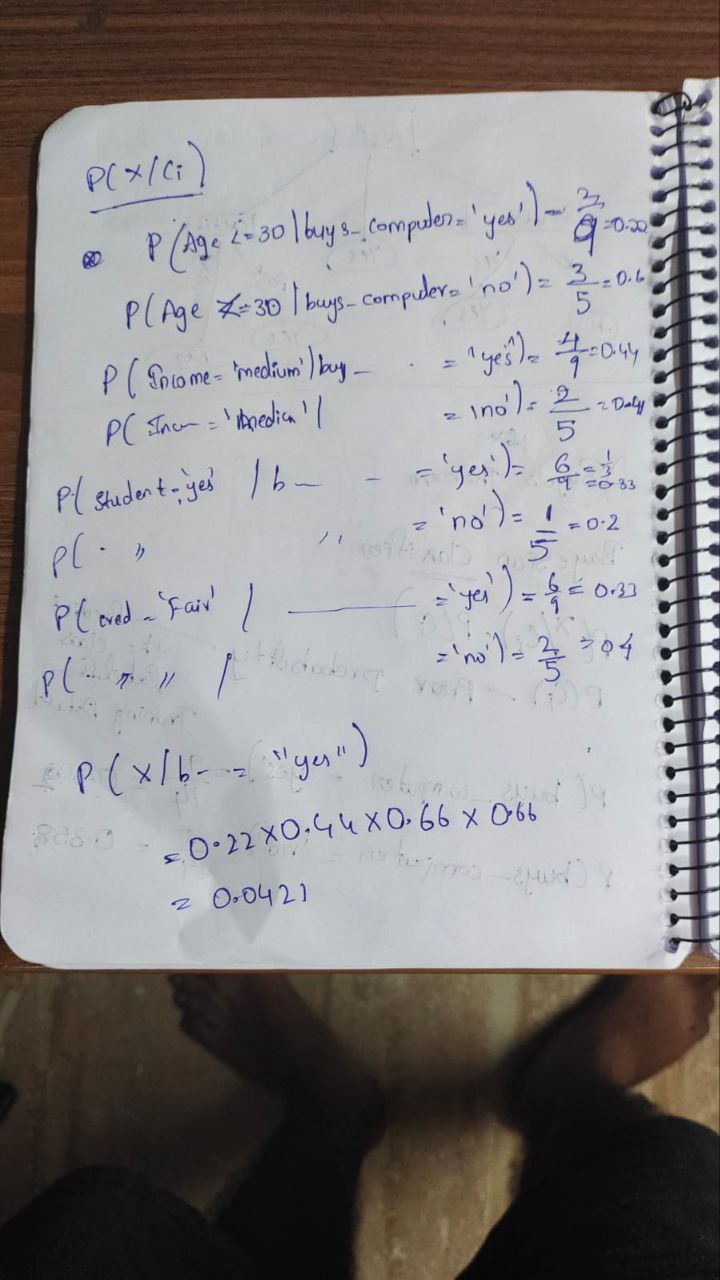 P(X/Ci)
P(Age <=30 | buys_computer='yes') = 2/9 =0.22
P(Age <=30 | buys_computer= 'no') = 3/5 =0.6
P(Income= 'medium') buy_ . = "yes") = 4/9 =0.44
P( = | = 'no') = 2/5 =
P(Student='yes' / b— - ='yes') = 6/9 = 1/3 =0.33
P( . " ,, ='no') = 1/5 =0.2
P(cred = 'Fair' / ——— ='yes') = 6/9 = 0.33
P( - " " / ='no') = 2/5 =
P(X/b-- = "yes")
=0.22×0.44×0.66 × 0.66
= 0.0421